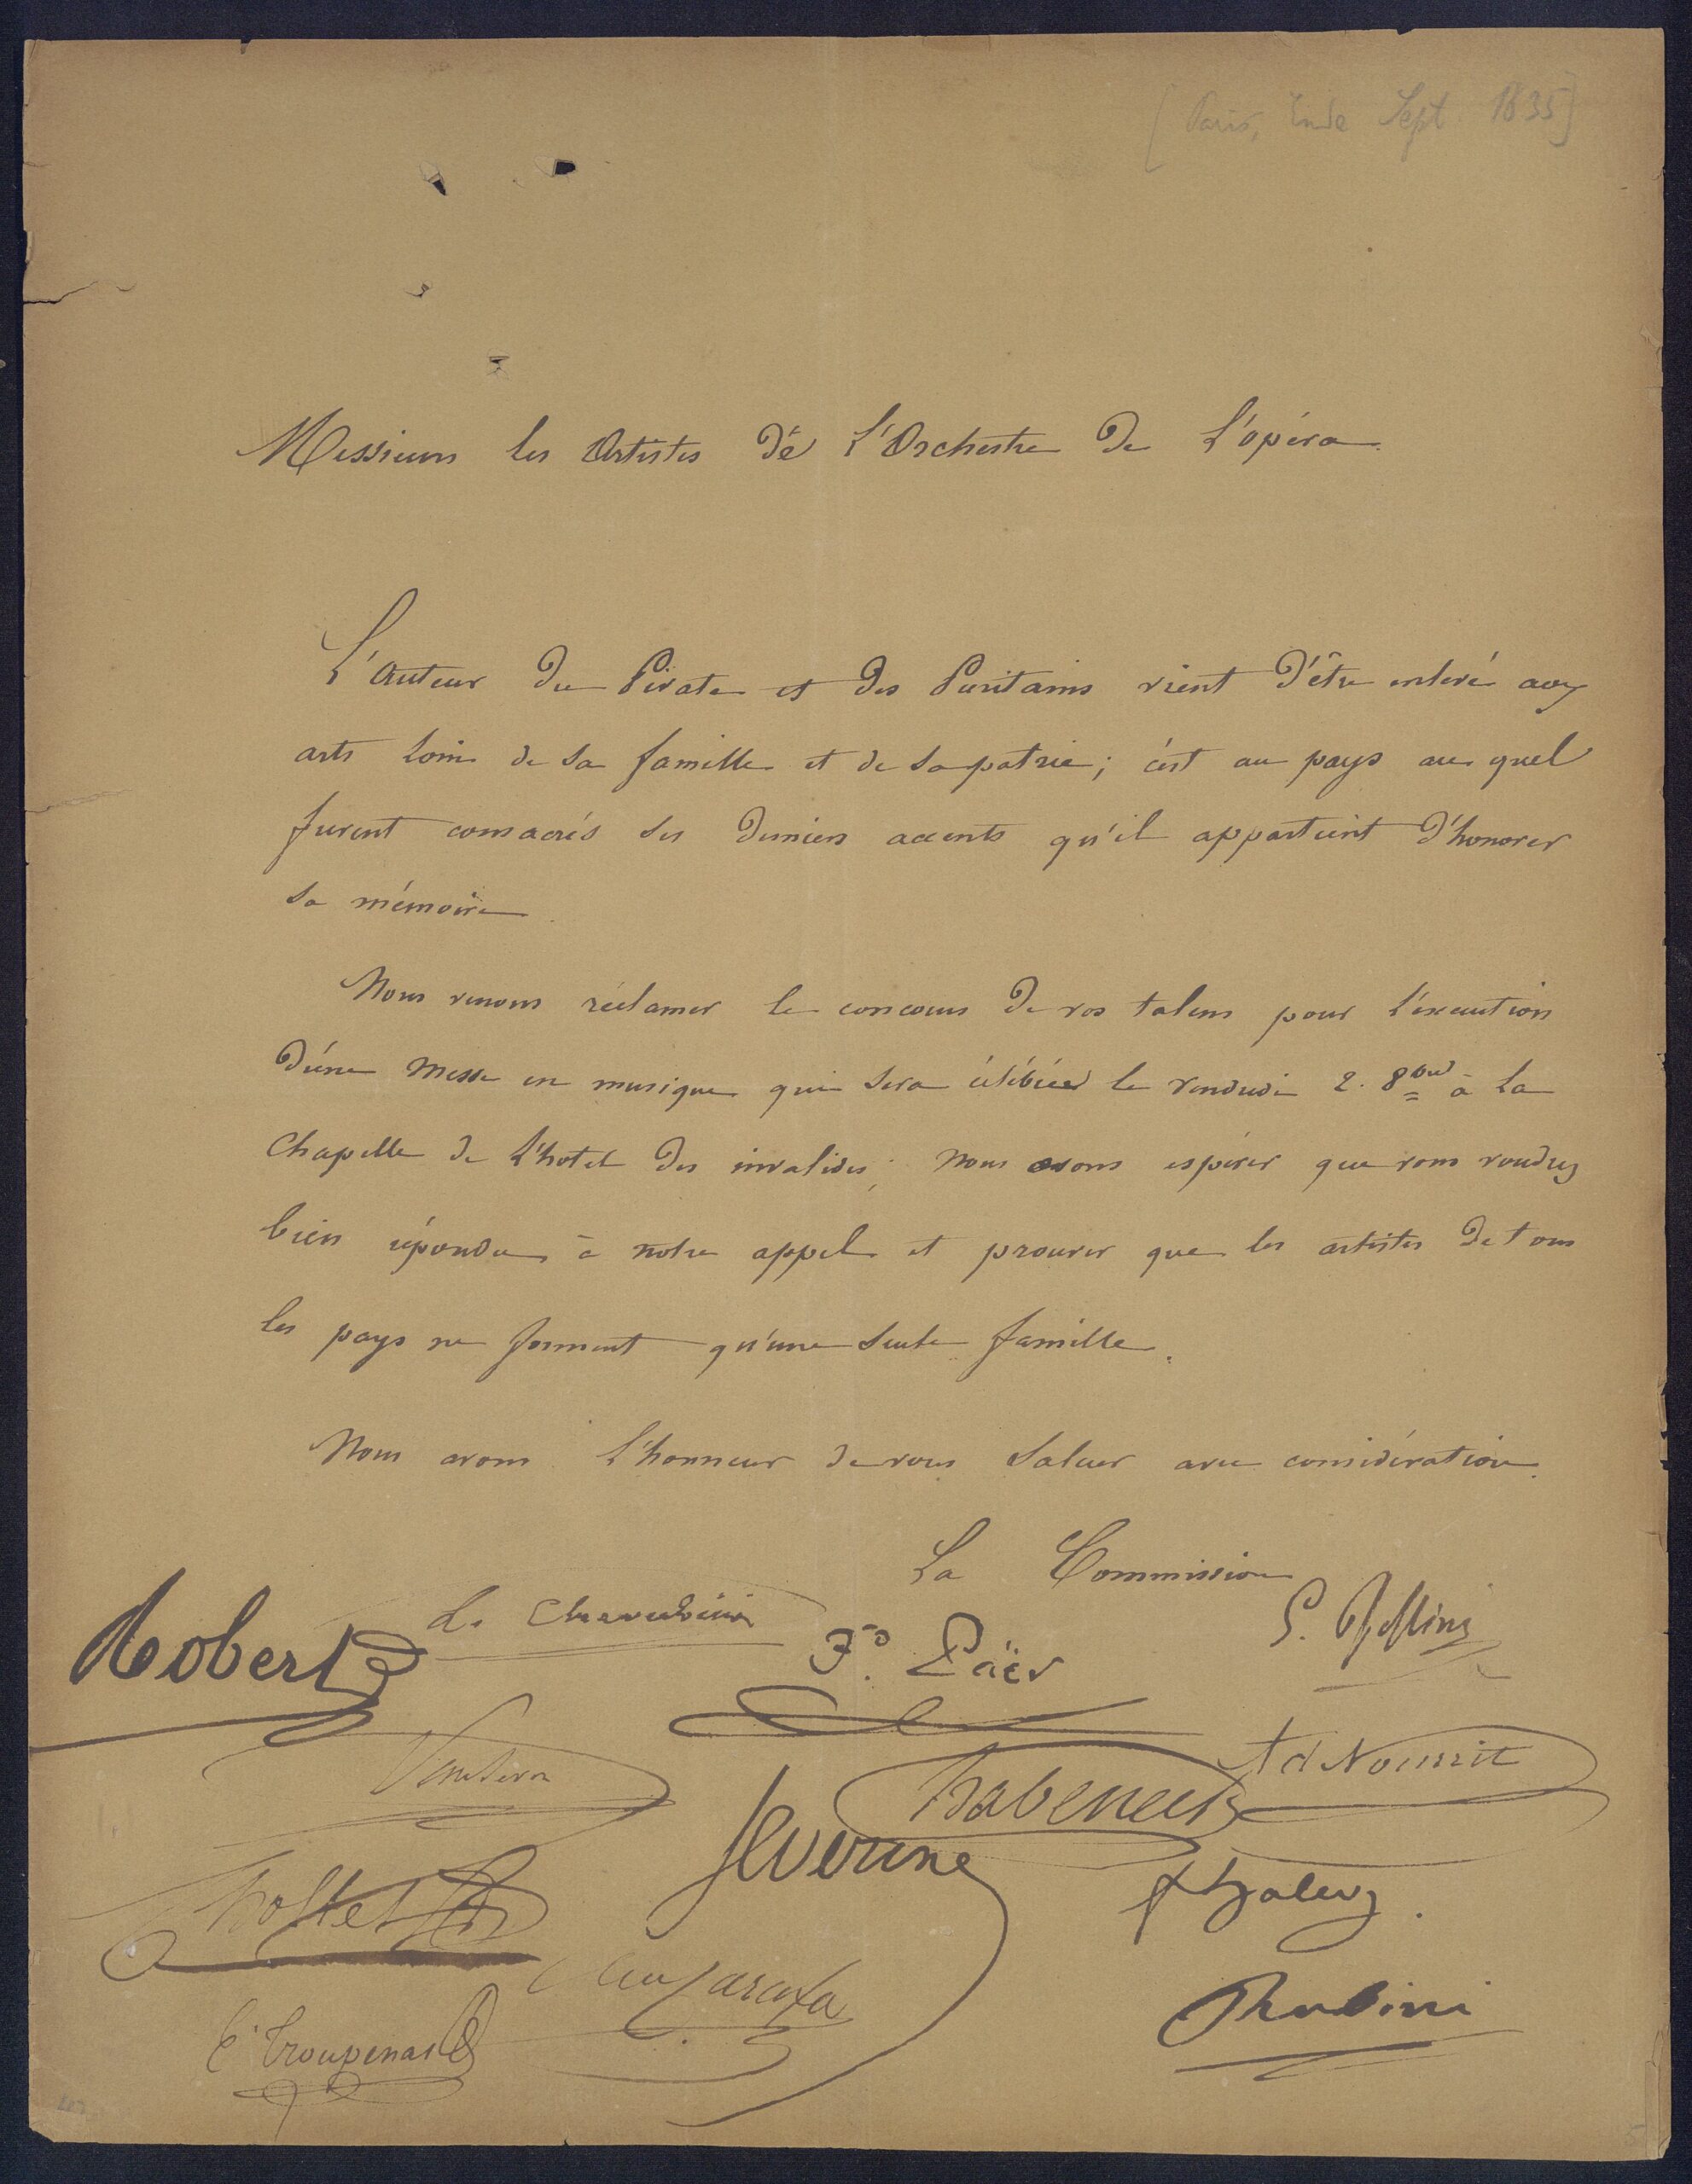 [Paris, Ende Sept. 1835]
Messieurs les Artistes de L'Orchestre de L'opéra.
L'Auteur du Pirate et des Puritains vient d'être enlevé aux
arts loin de sa famille et de sa patrie; c'est au pays au quel
furent consacrés ses derniers accents qu'il appartient d'honorer
sa mémoire.
Nous venons réclamer le concours de vos talens pour l'exécution
d'une Messe en musique qui sera célébrée le vendredi 2. 8bre à La
Chapelle de L'hotel des invalides; Nous osons espérer que vous voudrez
bien répondre à notre appel et prouver que les artistes de tous
les pays ne forment qu'une seule famille.
Nous avons l'honneur de vous saluer avec considération.
La Commission
Robert
L. Cherubini
Fdo. Paër
Ventura
Ad Nourrit
habeneck
Severini
f halevy.
Carafa
Rubini
E. Troupenas